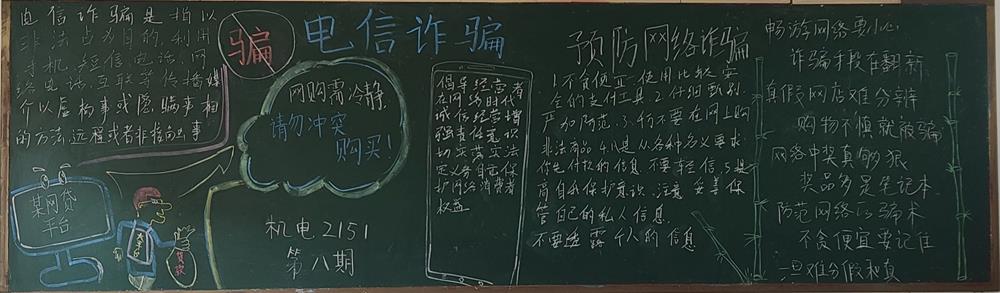 电信诈骗是指以
非法占为目的,利用
手机短信电话,网
络电话,互联等传播媒
介以虚构事或隐瞒事相
的方法远程或者非接的事
骗
电信诈骗
网购需冷静
请勿冲突
购买!
某网贷
平台
贷款
机电2151
第八期
倡导经营者
在网络时代
诚信经营增
强责任意识
切实落实法
定义务自己保
护网络消费者
权益
预防网络诈骗
1.不贪便宜,使用比较安
全的支付工具2.仔细甄别,
严加防范.3.初不要在网上购
非法商品4.凡是以各种名义要求
你先付款的信息不要轻信,5.提
高自我保护意识,注意妥善保
管自己的私人信息
不要透露个人的信息
畅游网络要小心
诈骗手段在翻新
真假网店难分辨
购物不慎就被骗
网络中奖真够狠
奖品多是笔记本
防范网络
骗术
不贪便宜要记住
一旦难分假和真